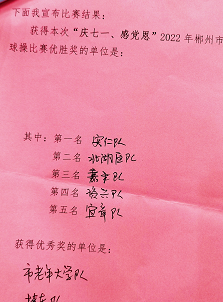 下面我宣布比赛结果：
获得本次“庆七一、感党恩”2022年郴州市
球操比赛优胜奖的单位是：
其中：第一名 安仁队
第二名 北湖区队
第三名 嘉禾队
第四名 资兴队
第五名 宜章队
获得优秀奖的单位是：
市老年大学队